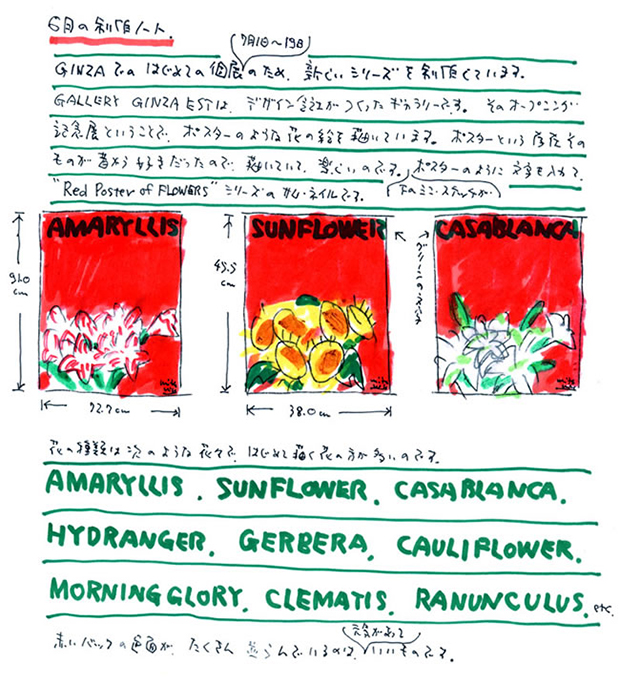 6月の制作ノート.
7月1日〜19日
GINZAでの はじめての個展のため、新しいシリーズを制作しています。
GALLERY GINZA ESTは、デザイン会社がつくったギャラリーです。そのオープニング
記念展ということで、ポスターのような花の絵を描いています。ポスターという存在その
ものが昔から好きだったので、描いていて、楽しいのです。ポスターのように文字を入れて、
"Red Poster of FLOWERS" シリーズのサムネイルです。
下のミニ・スケッチが
AMARYLLIS SUNFLOWER CASABLANCA
91.0 cm
45.5 cm
72.7cm
38.0cm
花の種類は次のような花々で、はじめて描く花の方が多いのです。
AMARYLLIS. SUNFLOWER. CASABLANCA.
HYDRANGER. GERBERA. CAULIFLOWER.
MORNING GLORY. CLEMATIS. RANUNCULUS. etc.
元気があって
赤いバックの画面が、たくさん並らんでいるのは、いいものです。